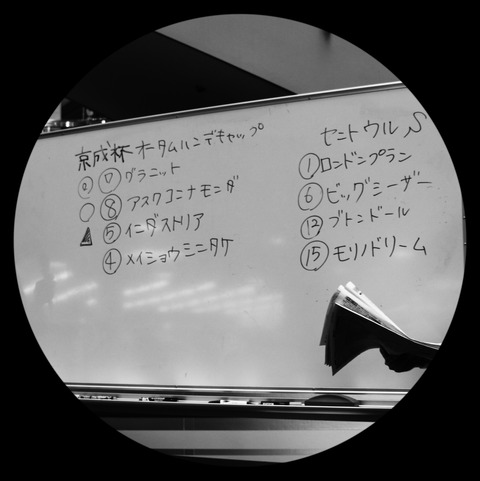 京成杯 オータムハンデキャップ
◎ グラニット
○ ⑧ アスクコンナモンダ
▲ ⑤ インダストリア
④ メイショウシンタケ
セントウルS
① ロンドンプラン
⑥ ビッグシーザー
⑫ ブトンドール
⑮ モリノドリーム